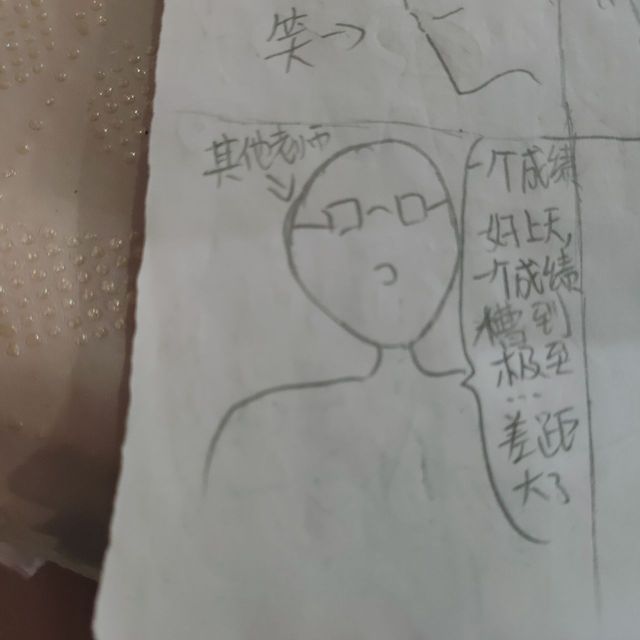 笑→
其他老师
一个成绩
好上天,
一个成绩
糟到
极至
...
差距
大了